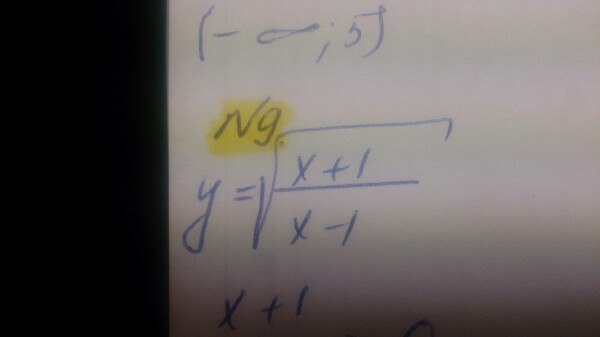 (-∞; 5)
№9.
y = √((x+1)/(x-1))
x+1